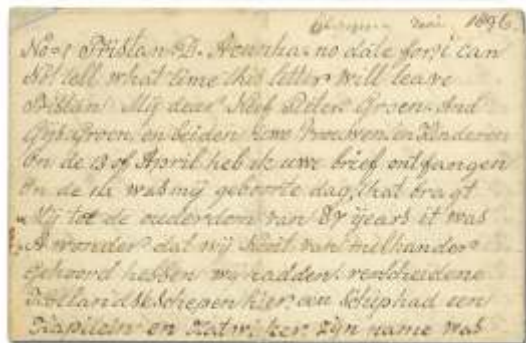 1896
No=1 Tristan D. Acunha. no date for, i can
Not tell what time this letter will leave
Tristan Mij dear Neef Pieter Groen. And
Groen. en beiden uwe Vrouwen. en Kinderen
On de 13 of April heb ik uwe brief ontfangen
On de was mij geboorte dag, that bragt
Mij tot de ouderdom van 87 years it was
A wonder dat wij niet van melkander
Gehoord hebben wij hadden verscheidene
Hollandse Schepen hier een Schip had een
Kapitein en Katwijker zijn name was